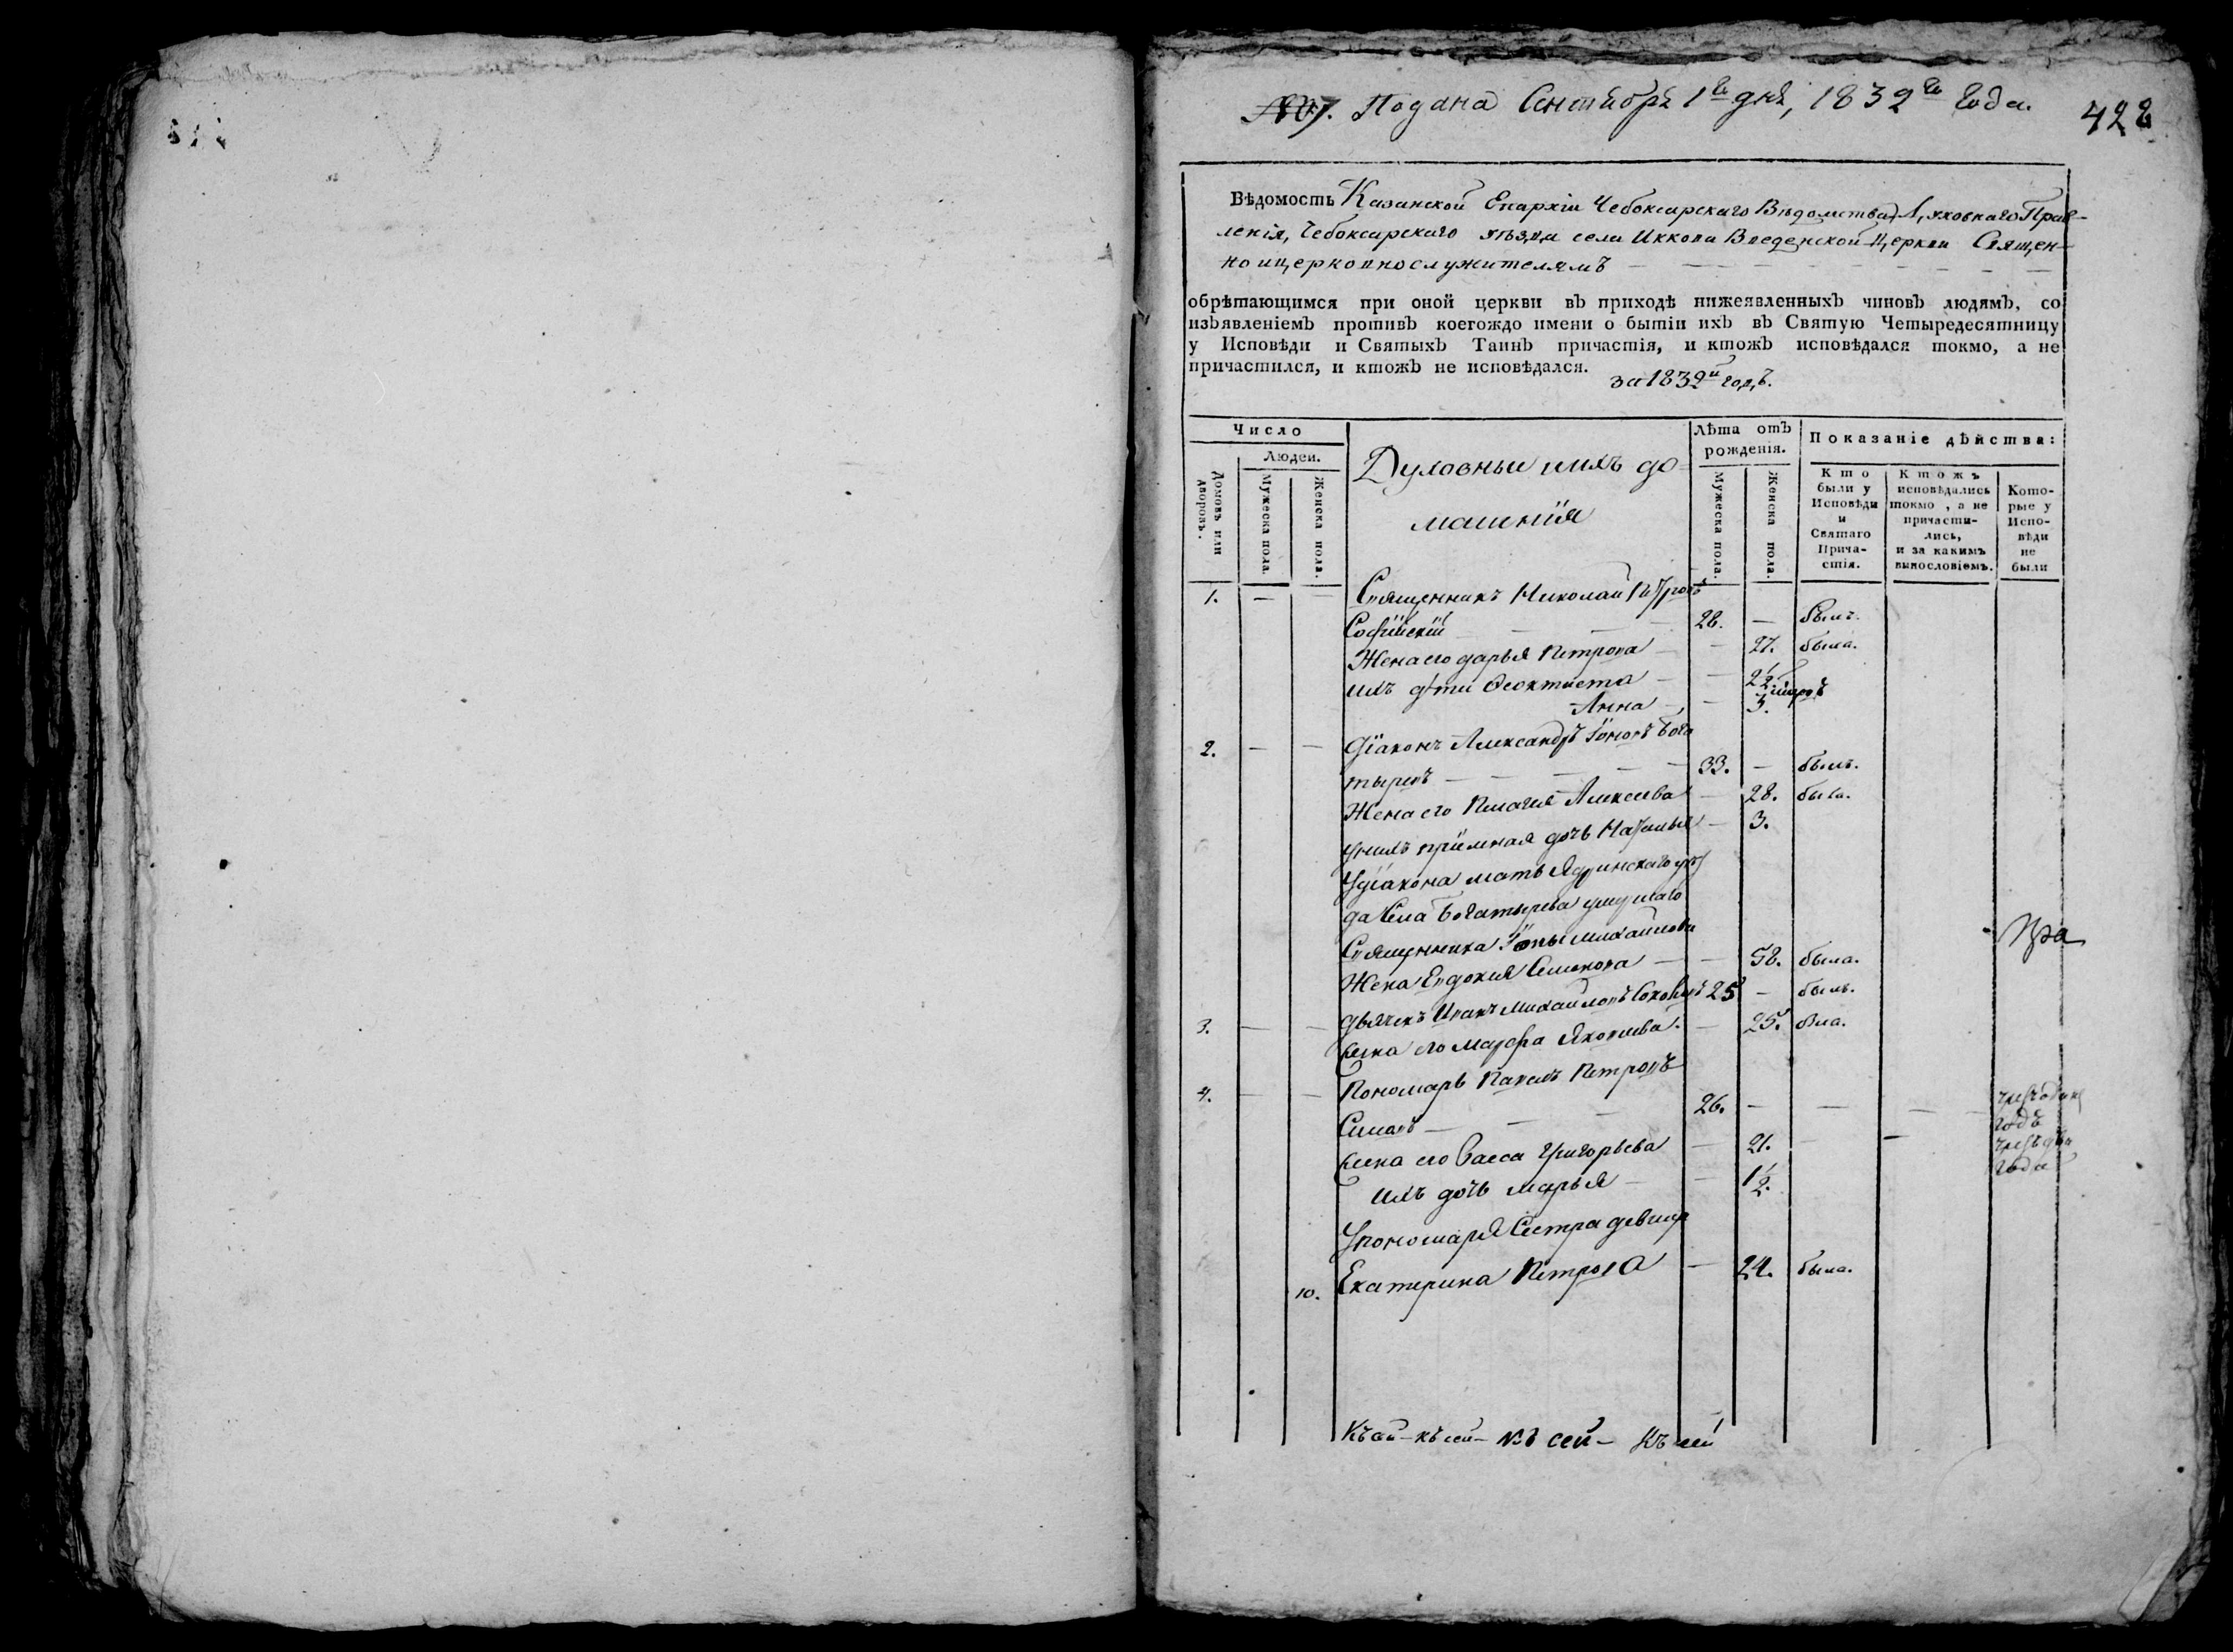 Подана Сентября 1го дня, 1832го Года.
428
Вѣдомость Казанской Епархіи Чебоксарскаго Вѣдомства Прав-
ленія, Чебоксарскаго уѣзда села Иккова Введенской церкви Священ-
но и церковнослужителямъ
обрѣтающимся при оной церкви въ приходѣ нижеявленныхъ чиновъ людямъ, со
изъявленіемъ противъ коегождо имени о бытіи ихъ въ Святую Четыредесятницу
у Исповѣди и Святыхъ Таинъ причастія, и ктожъ исповѣдался токмо, а не
причастился, и ктожъ не исповѣдался.
за 1832й годъ.
Число
Людей.
Домовъ или дворовъ.
Мужеска пола.
Женска пола.
Духовные и ихъ до-
машнія
Лѣта отъ
рожденія.
Мужеска пола.
Женска пола.
Показаніе дѣйства:
Кто
были у
Исповѣди
и
Святаго
Прича-
стія.
Ктожъ
исповѣдались
токмо, а не
причасти-
лись,
и за какимъ
винословіемъ.
Кото-
рые у
Испо-
вѣди
не
были
1. — — Священникъ Николай Петровъ
Софійскій — — — 28. — былъ.
Жена его дарья Петрова — — 27. была.
ихъ дѣти Феоктиста — — 2 1/2.
Анна — — 3.
2. — — Діаконъ Александръ Іоновъ Бога
тыревъ — — — — 33. — былъ.
Жена его Пелагея Алексеева — 28. была.
у нихъ пріемная дочь Наталья — 3.
У діакона мать Ядринскаго уѣз
да Села Богатырева умершаго
Священника Іоны Михайлова
Жена Евдокия Семенова — — 58. была.
3. — — дьячекъ Иванъ Михайловъ 25 — былъ.
Жена его Марфа Яковлева. — 25. была.
4. — — Пономарь Павелъ Петровъ
— — 26. — — —
чрезъ одинъ
годъ
Жена его Васса Григорьева — 21. — —
чрезъ два
года
ихъ дочь марья — — 1 1/2.
У пономаря Сестра девица
10. Екатерина Петрова — 24. была.
къ сей — къ сей — къ сей — къ сей